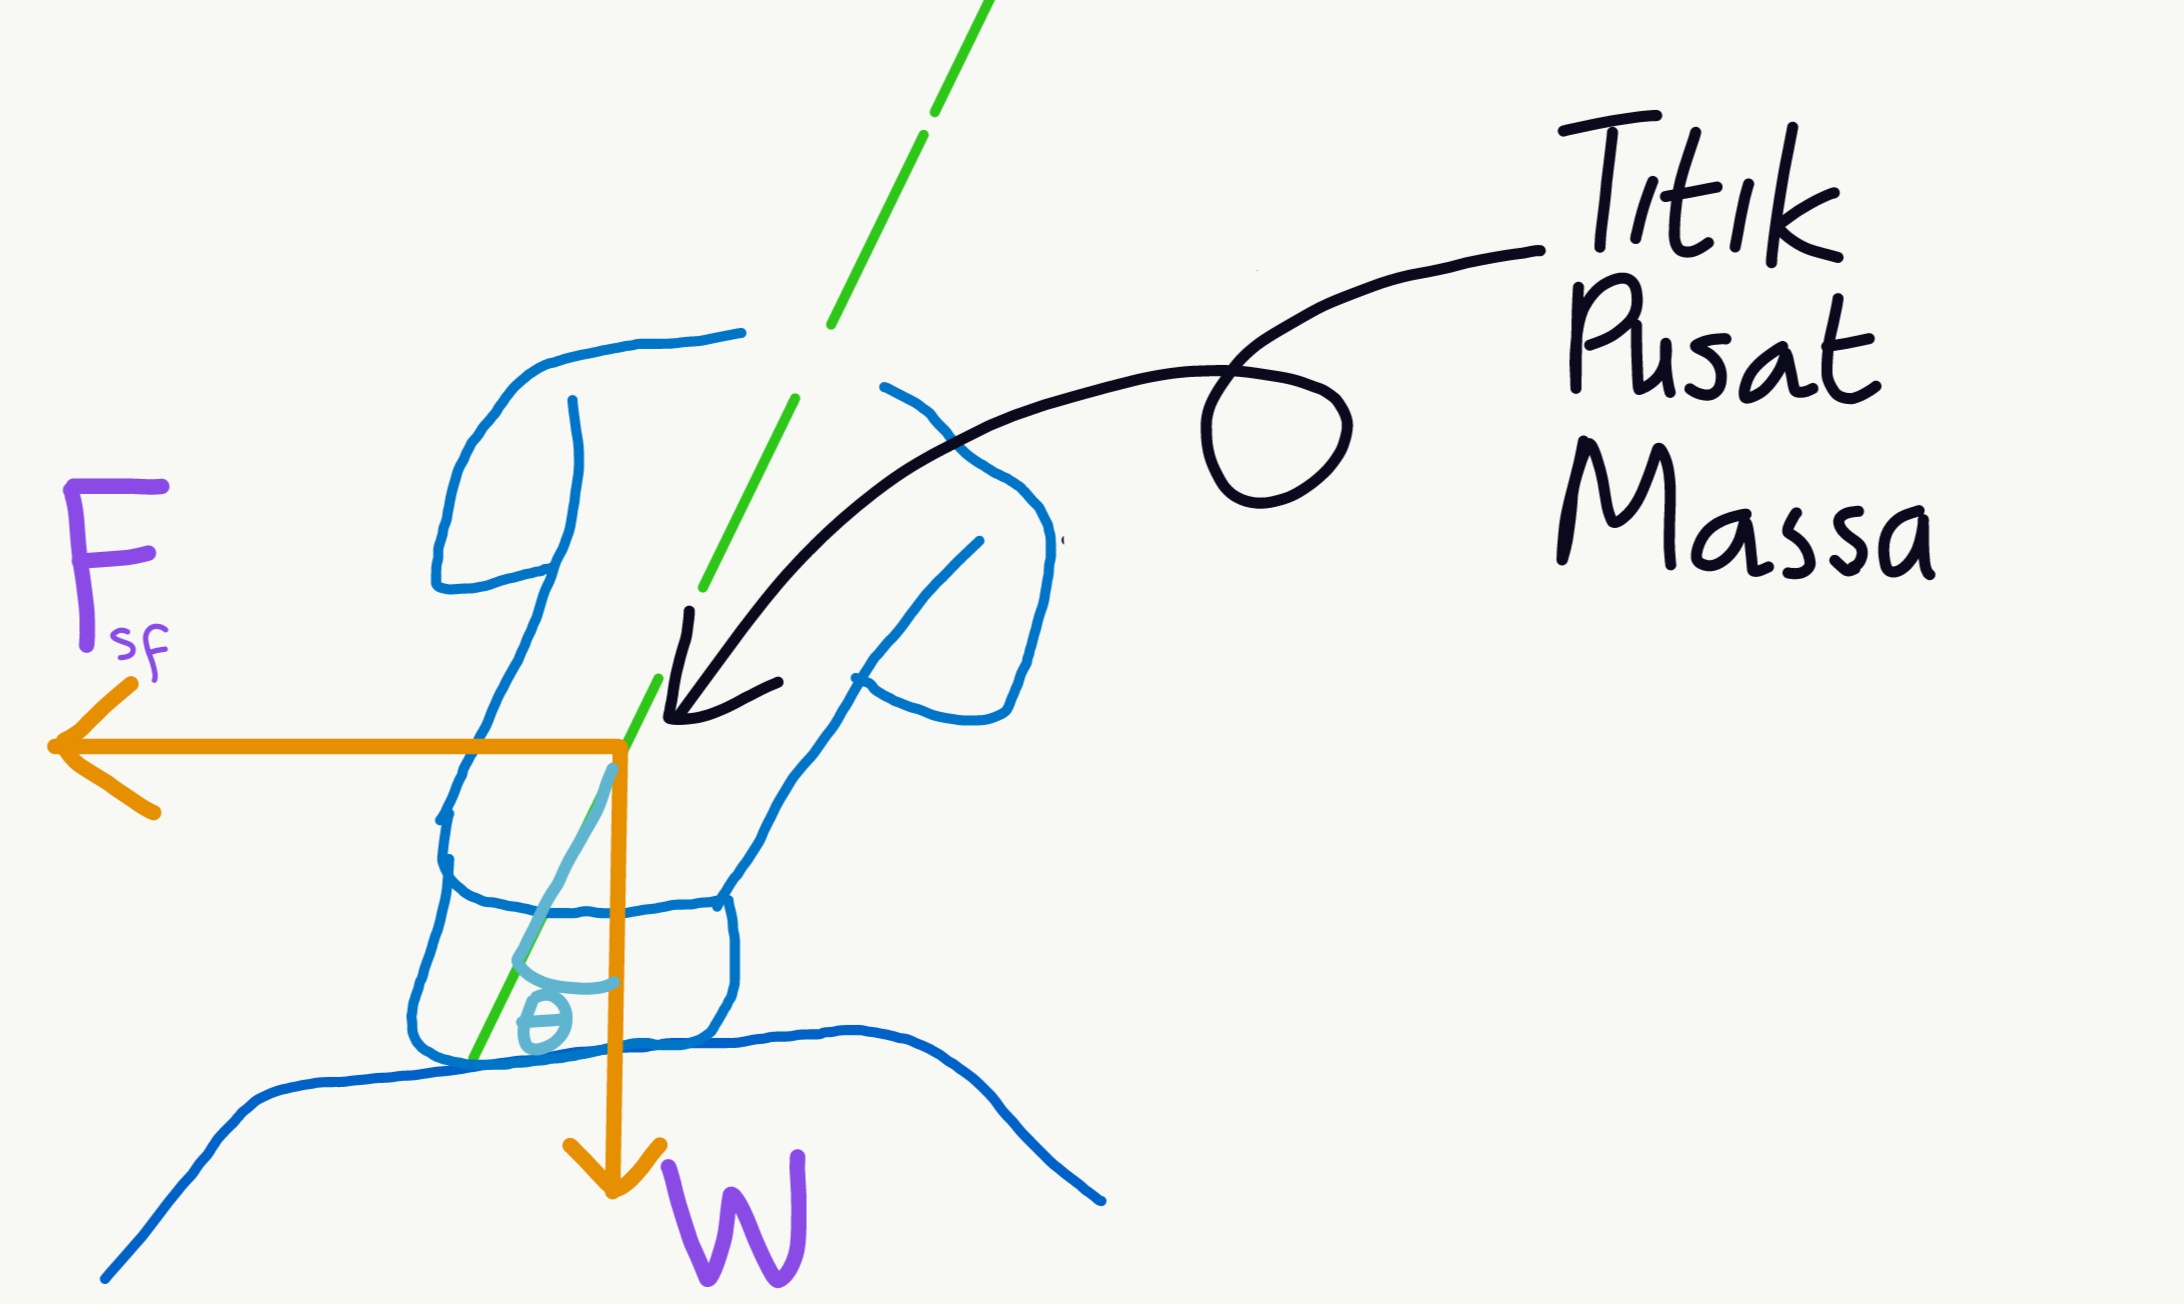 Titik
Pusat
Massa
Fsf
θ
W